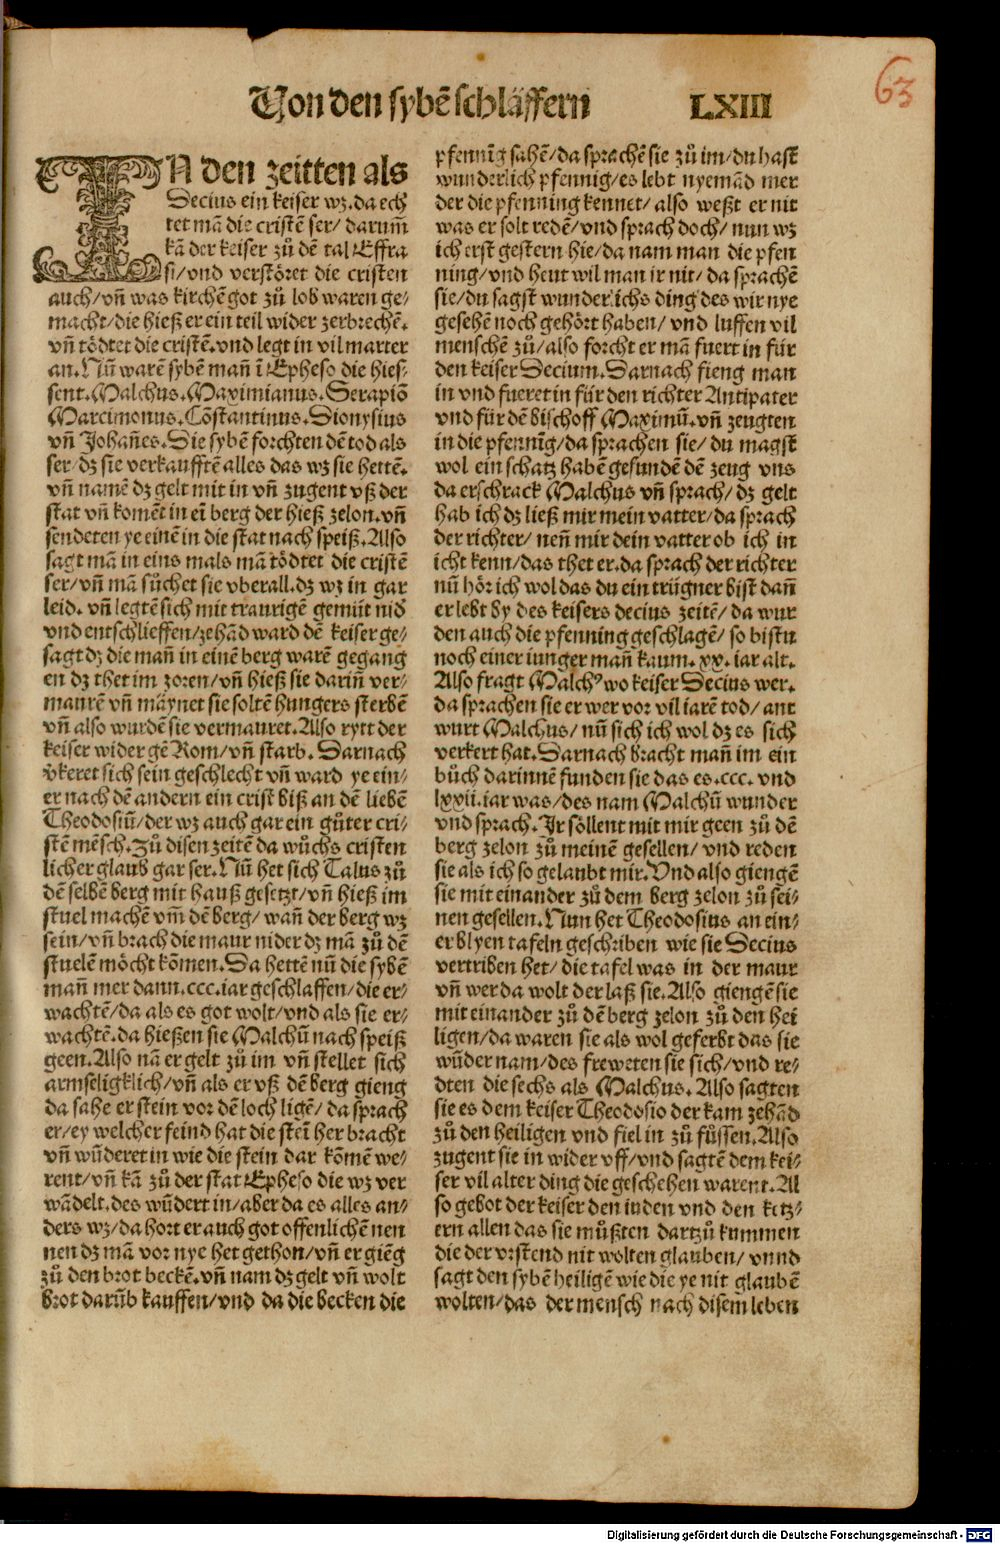 Von den sybẽ schläffern
LXIII
63
IN den zeitten als
Decius ein keiser wz. da ech
tet mã die cristẽ ser/ darum̃
kã der keiser zů dẽ tal Effra
si/ vnd verstöret die cristen
auch/ vñ was kirchẽ got zů lob waren ge⸗
macht/ die hieß er ein teil wider zerbrechẽ.
vñ tödtet die cristẽ. vnd legt in vil marter
an. Nũ warẽ sybẽ mañ ĩ Epheso die hies⸗
sent. Malchus. Maximianus. Serapiõ
Marcimonus. Cõstantinus. Dionysius
vñ Johañes. Die sybẽ forchten dẽ tod als
ser/ dz sie verkaufftẽ alles das wz sie hettẽ.
vñ namẽ dz gelt mit in vñ zugent vß der
stat vñ komẽt in eĩ berg der hieß zelon. vñ
sendeten ye einẽ in die stat nach speiß. Also
sagt mã in eins mals mã tödtet die cristẽ
ser/ vñ mã sůchet sie vberall. dz wz in gar
leid. vñ legtẽ sich mit traurigẽ gemüt nid̕
vnd entschlieffen/ zehãd ward dẽ keiser ge⸗
sagt dz die mañ in einẽ berg warẽ gegang
en dz thet im zoren/ vñ hieß sie dariñ ver⸗
maurẽ vñ mäynet sie soltẽ hungers sterbẽ
vñ also wurdẽ sie vermauret. Also rytt der
keiser wider gẽ Rom/ vñ starb. Darnach
v̕keret sich sein geschlecht vñ ward ye ein⸗
er nach dẽ andern ein crist biß an dẽ liebẽ
Theodosiũ/ der wz auch gar ein gůter cri⸗
stẽ mẽsch. Zů disen zeitẽ da wůchs cristen
licher glaub gar ser. Nũ het sich Talus zů
dẽ selbẽ berg mit hauß gesetzt/ vñ hieß im
stuel machẽ vm̃ dẽ berg/ wañ der berg wz
sein/ vñ brach die maur nider dz mã zů dẽ
stuelẽ möcht kõmen. Da hettẽ nũ die sybẽ
mañ mer dann. ccc. iar geschlaffen/ die er⸗
wachtẽ/ da als es got wolt/ vnd als sie er⸗
wachtẽ. da hießen sie Malchũ nach speiß
geen. Also nã er gelt zů im vñ stellet sich
armseligklich/ vñ als er vß dẽ berg gieng
da sahe er stein vor dẽ loch ligẽ/ da sprach
er/ ey welcher feind hat die steĩ her bracht
vñ wũderet in wie die stein dar kõmẽ we⸗
rent/ vñ kã zů der stat Epheso die wz ver
wãdelt. des wũdert in/ aber da es alles an⸗
ders wz/ da hort er auch got offenlichẽ nen
nen dz mã vor nye het gethon/ vñ er giẽg
zů den brot beckẽ. vñ nam dz gelt vñ wolt
brot darũb kauffen/ vnd da die becken die
pfennĩg sahẽ/ da sprachẽ sie zů im/ du hast
wunderlich pfennig/ es lebt nyemãd mer
der die pfenning kennet/ also weßt er nit
was er solt redẽ/ vnd sprach doch/ nun wz
ich erst gestern hie/ da nam man die pfen
ning/ vnd heut wil man ir nit/ da sprachẽ
sie/ du sagst wunderlichs ding des wir nye
gesehẽ noch gehört haben/ vnd luffen vil
menschẽ zů/ also forcht er mã fuert in für
den keiser Decium. Darnach fieng man
in vnd fueret in für den richter Antipater
vnd für dẽ bischoff Maximũ. vñ zeugten
in die pfennĩg/ da sprachen sie/ du magst
wol ein schatz habẽ gefundẽ dẽ zeug vns
da erschrack Malchus vñ sprach/ dz gelt
hab ich dz ließ mir mein vatter/ da sprach
der richter/ neñ mir dein vatter ob ich in
icht kenn/ das thet er. da sprach der richter
nũ hör ich wol das du ein trügner bist dañ
er lebt by des keisers decius zeitẽ/ da wur
den auch die pfenning geschlagẽ/ so bistu
noch einer iunger mañ kaum. xx. iar alt.
Also fragt Malchꝰ wo keiser Decius wer.
da sprachen sie er wer vor vil iarẽ tod/ ant
wurt Malchus/ nũ sich ich wol dz es sich
verkert hat. Darnach bracht mañ im ein
bůch darinnẽ funden sie das es. ccc. vnd
lxxii. iar was/ des nam Malchũ wunder
vnd sprach. Ir söllent mit mir geen zů dẽ
berg zelon zů meinẽ gesellen/ vnd reden
sie als ich so gelaubt mir. Vnd also giengẽ
sie mit einander zů dem berg zelon zů sei⸗
nen gesellen. Nun het Theodosius an ein⸗
er blyen tafeln geschriben wie sie Decius
vertriben het/ die tafel was in der maur
vñ wer da wolt der laß sie. Also giengẽ sie
mit einander zů dẽ berg zelon zů den hei
ligen/ da waren sie als wol geferbt das sie
wũder nam/ des freweten sie sich/ vnd re⸗
dten die sechs als Malchus. Also sagten
sie es dem keiser Theodosio der kam zehãd
zů den heiligen vnd fiel in zů füssen. Also
zugent sie in wider vff/ vnd sagtẽ dem kei⸗
ser vil alter ding die geschehen warent. Al
so gebot der keiser den iuden vnd den ketz⸗
ern allen das sie můßten dartzů kummen
die der vrstend nit wolten glauben/ vnnd
sagt den sybẽ heiligẽ wie die ye nit glaubẽ
wolten/ das der mensch nach disem leben
Digitalisierung gefördert durch die Deutsche Forschungsgemeinschaft - DFG